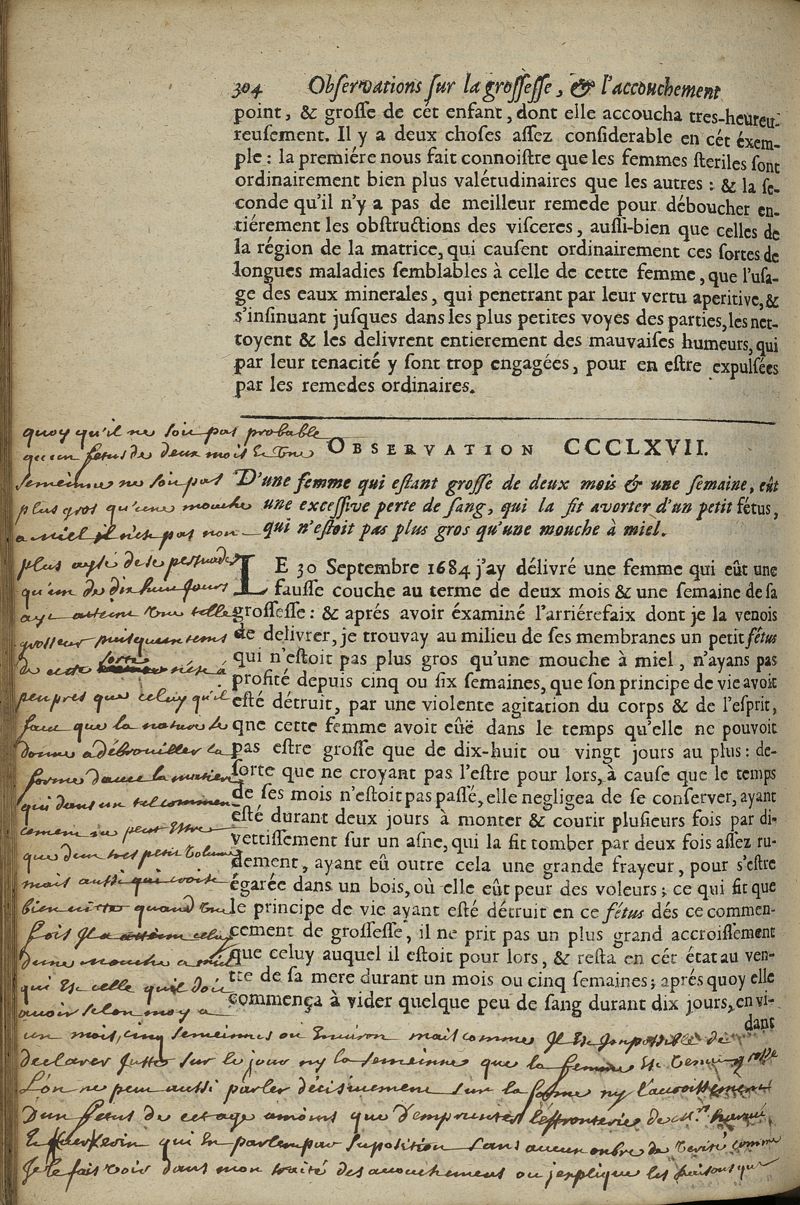 304 Obſervations ſur la groſſeſſe, & l'accouchement
point, & groſſe de cét enfant, dont elle accoucha tres-heureu-
reuſement. Il y a deux choſes aſſez conſiderable en cét éxem-
ple : la premiére nous fait connoiſtre que les femmes ſteriles ſont
ordinairement bien plus valétudinaires que les autres : & la ſe-
conde qu'il n'y a pas de meilleur remede pour déboucher en-
tiérement les obſtructions des viſceres, auſſi-bien que celles de
la région de la matrice, qui cauſent ordinairement ces ſortes de
longues maladies ſemblables à celle de cette femme, que l'uſa-
ge des eaux minerales, qui penetrant par leur vertu aperitive, &
s'inſinuant juſques dans les plus petites voyes des parties, les net-
toyent & les delivrent entierement des mauvaiſes humeurs, qui
par leur tenacité y ſont trop engagées, pour en eſtre expulſées
par les remedes ordinaires.
OBSERVATION CCCLXVII.
D'une femme qui eſtant groſſe de deux mois & une ſemaine, eût
une exceſſive perte de ſang, qui la fit avorter d'un petit fétus,
qui n'eſtoit pas plus gros qu'une mouche à miel.
LE 30 Septembre 1684 j'ay délivré une femme qui eût une
fauſſe couche au terme de deux mois & une ſemaine de ſa
groſſeſſe : & aprés avoir éxaminé l'arriérefaix dont je la venois
de delivrer, je trouvay au milieu de ſes membranes un petit fétus
qui n'eſtoit pas plus gros qu'une mouche à miel, n'ayans pas
profité depuis cinq ou ſix ſemaines, que ſon principe de vie avoit
eſté détruit, par une violente agitation du corps & de l'eſprit,
qne cette femme avoit eûë dans le temps qu'elle ne pouvoit
pas eſtre groſſe que de dix-huit ou vingt jours au plus : de-
ſorte que ne croyant pas l'eſtre pour lors, à cauſe que le temps
de ſes mois n'eſtoit pas paſſé, elle negligea de ſe conſerver, ayant
eſté durant deux jours à monter & courir pluſieurs fois par di-
vertiſſement ſur un aſne, qui la fit tomber par deux fois aſſez ru-
dement, ayant eû outre cela une grande frayeur, pour s'eſtre
égarée dans un bois, où elle eût peur des voleurs ; ce qui fit que
le principe de vie ayant eſté détruit en ce fétus dés ce commen-
cement de groſſeſſe, il ne prit pas un plus grand accroiſſement
que celuy auquel il eſtoit pour lors, & reſta en cét état au ven-
tre de ſa mere durant un mois ou cinq ſemaines ; aprés quoy elle
commença à vider quelque peu de ſang durant dix jours, en vi-
dant
quoy qu'il ne soit pas probable
fetus de deux mois et une
semeinne ne soit pas
plus gros qu'une mouche
a miel il n'est pas non
plus aysé de se persuader
qu'un de dix huit jours
aye une telle
grosseur puisqu'un
de cette sorte n'est a
peu pres que celuy qu'il
faut que la nature
donne a débrouiller la
forme davec la matiere
qui dans un tel commen
cement ne peut estre
que dun tres petit volume
mais aussi qui croist
bien viste quand une
fois il a celuy
dune mouche a miel
qui est celle quil doit
avoir selon moy a
un mois, cinq semeinnes ou environ mais comme il est impossible de
declarer juste sur le jour ny la semeinne que la femme est devenue grosse
l'on ne peut aussi parler décisivement sur la forme ny l'accroissement
d'un fetus de cet age amoins que d'emprunter l'effronterie de
et Kerkerin qui en parlent par suposition sans aucun ombre de verité comme
je le fais voir dans mon traité des accouchements ou j'explique les raisons que